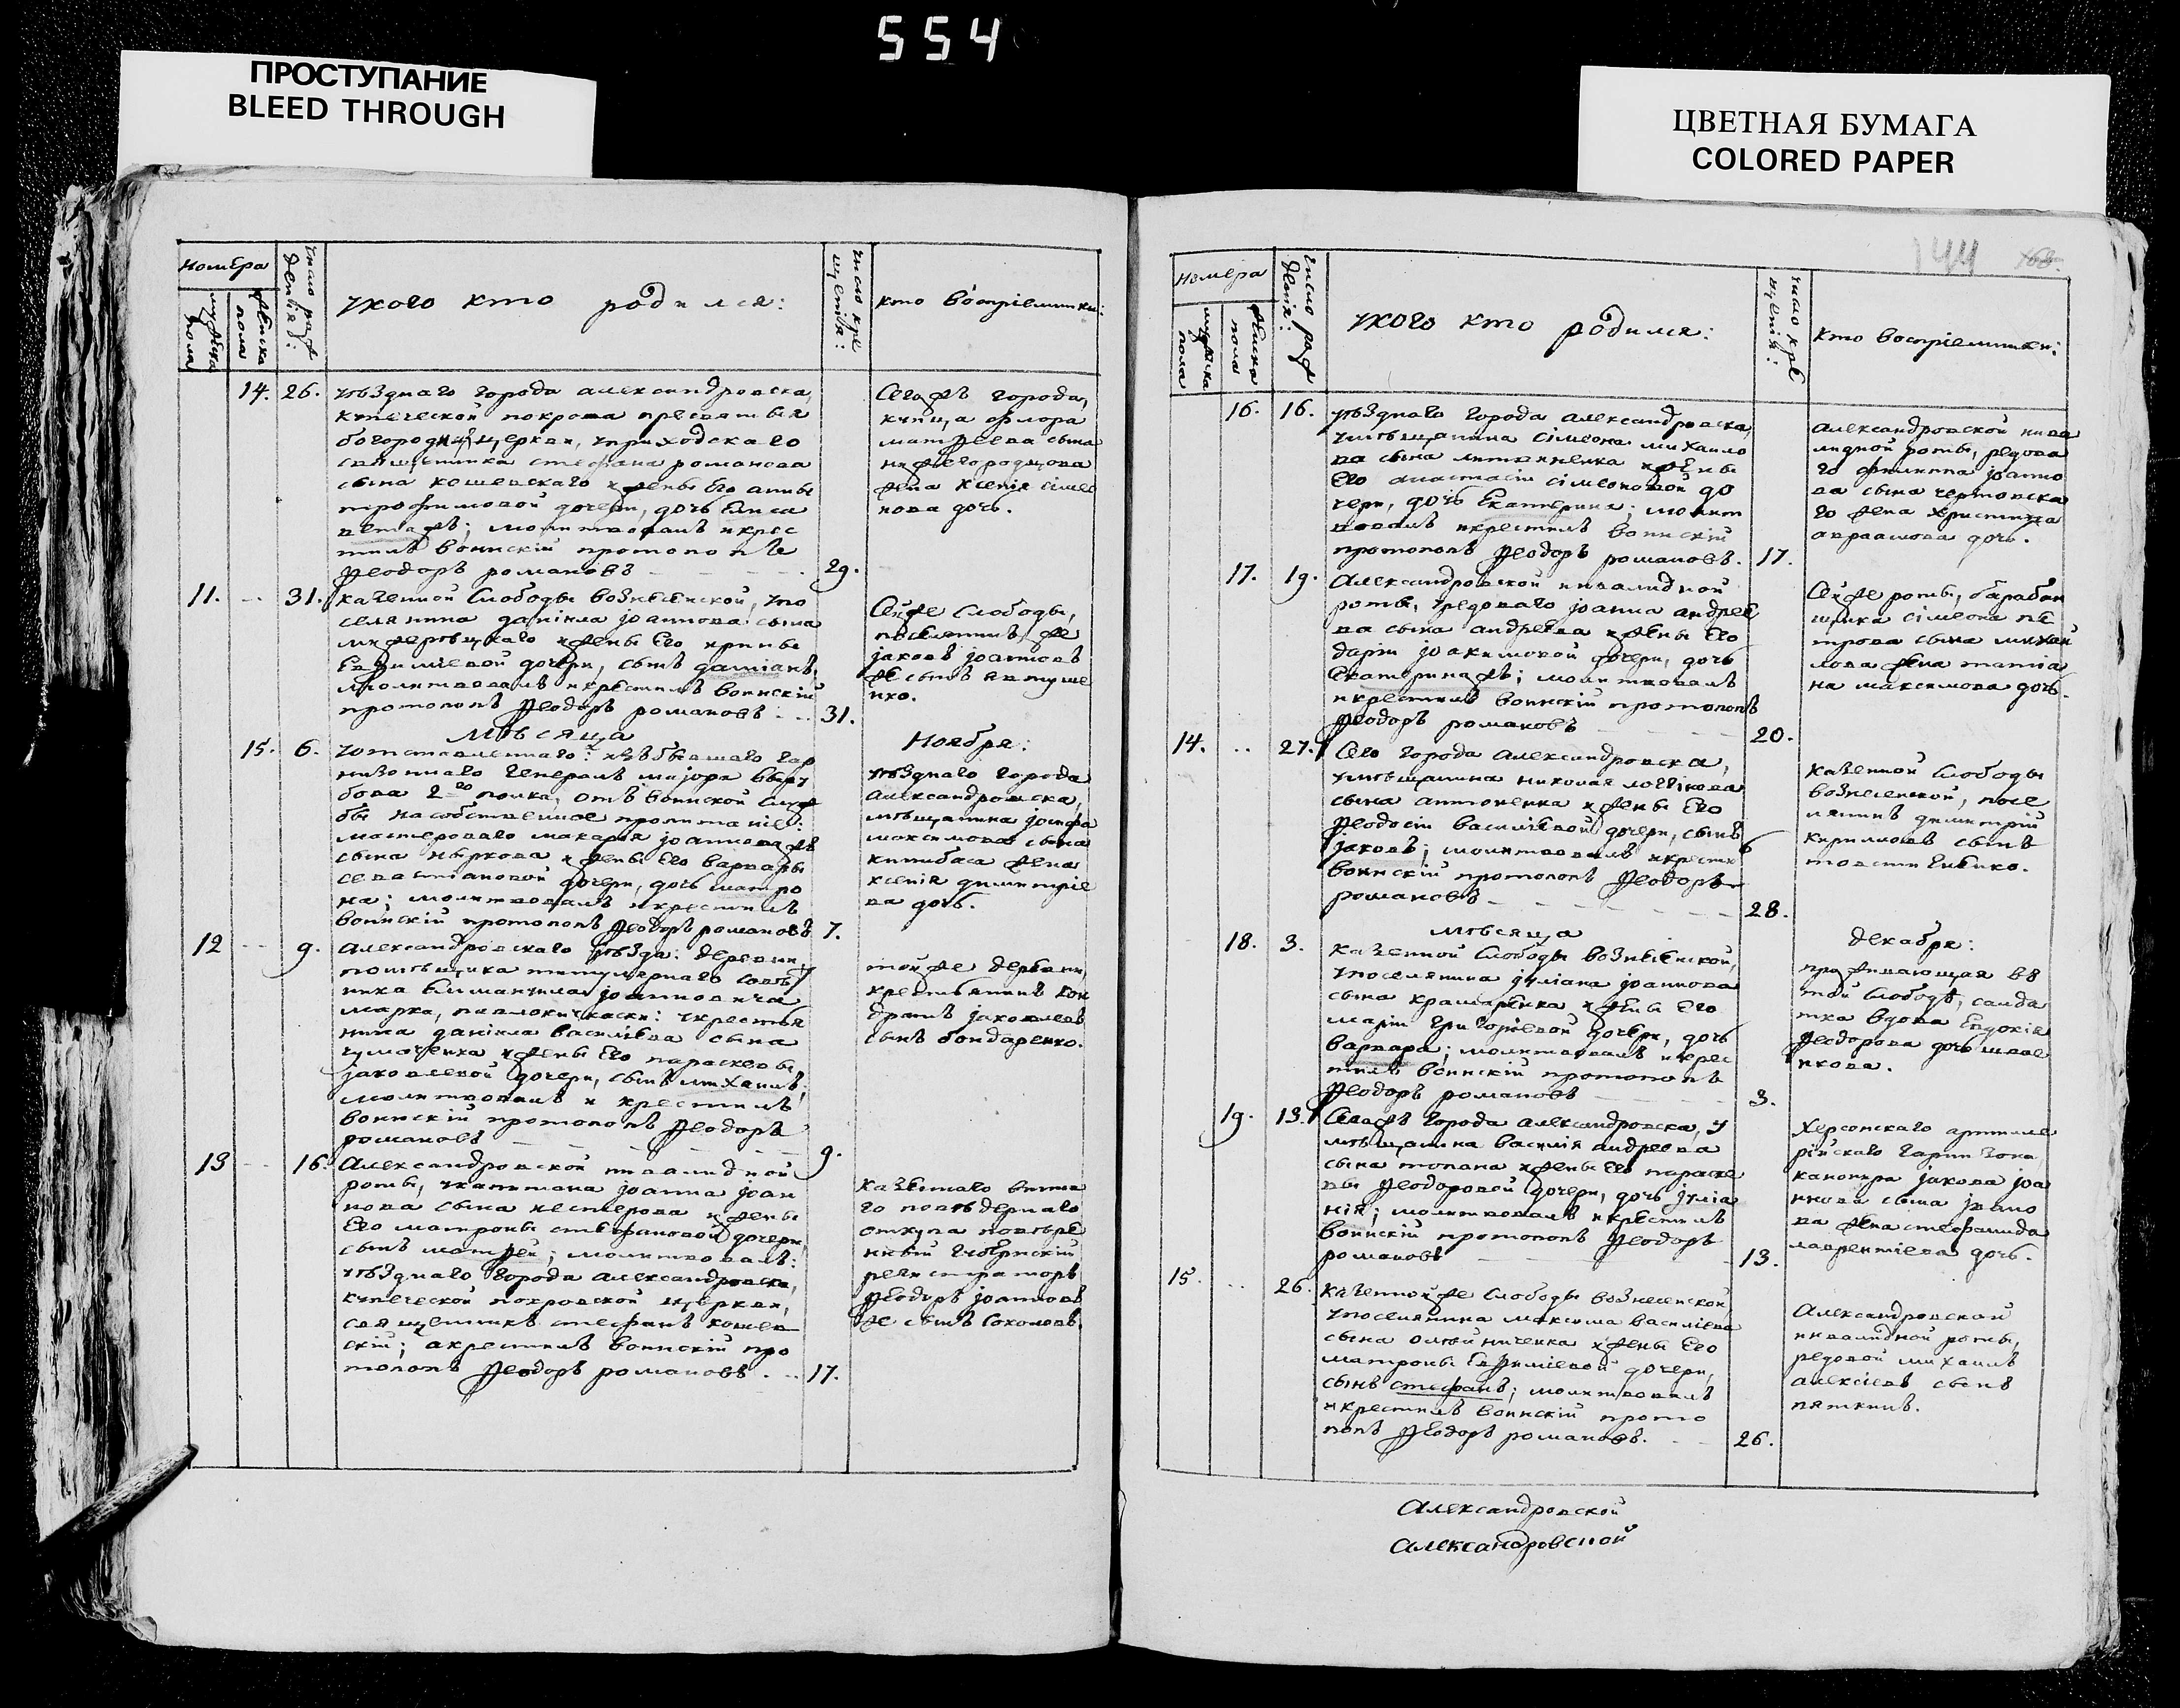 554
ПРОСТУПАНИЕ
BLEED THROUGH
ЦВЕТНАЯ БУМАГА
COLORED PAPER
144
номера
мужеска пола
женска пола
число рождения:
укого кто родился:
число крещения:
кто восприемники:
14. 26. уѣзднаго города александровска,
купеческой покрова пресвятыя
богородицы церкви, уприходскаго
священника стефана романова
сына кошевскаго ижены Его анны
трофимовой дочери, дочь Елиса
ветажъ; молитвовалъ икрес
тилъ воинскій протопопъ же
Ѳеодоръ романовъ 29.
Сегожъ города,
купца флора
матѳеева сына
нижегородцова
жена ксенія сімео
нова дочь.
11. 31. казенной Слободы вознесенской, упо
селянина даніила іоаннова сына
ижены Его ирины
Евѳиміевой дочери, сынъ даміанъ,
молитвовалъ икрестилъ воинскій
протопопъ Ѳеодоръ романовъ 31.
Сейже Слободы,
поселянинъ же
іаковъ іоанновъ
же сынъ Евтуше
нко.
мѣсяца Ноября:
15. 6. уотставленнаго: изъбывшаго гар
низоннаго генералъ маіора
2го полка, отъ воинской служ
бы насобственное пропитаніе:
мастероваго макарія іоаннова жъ
сына ныркова ижены Его варвары
севастіановой дочери, дочь матро
на; молитвовалъ икрестилъ
воинскій протопопъ Ѳеодоръ романовъ 7.
уѣзднаго города
александровска,
мѣщанина іосифа
максимова сына
жена
ксенія димитріе
ва дочь.
12 9. александровскаго уѣзда: деревни,
помѣщика титулярнаго совѣт
ника Еммануила іоанновича
марка, павлокичкаски: укрестья
нина даніила василіева сына
чумаченка ижены Его параскевы,
іаковлевой дочери, сынъ михаилъ;
молитвовалъ и крестилъ
воинскій протопопъ Ѳеодоръ
романовъ 9.
тойже деревни,
крестьянинъ кон
дратъ іаковлевъ
сынъ бондаренко.
13 16. Александровской инвалидной
роты, укапитана іоанна іоан
нова сына нестерова ижены
Его матроны стефановой дочери,
сынъ матѳей; молитвовалъ:
уѣзднаго города александровска,
купеческой покровской церкви,
священникъ стефанъ кошев
скій; акрестилъ воинскій про
топопъ Ѳеодоръ романовъ 17.
казеннаго винна
го
откупа повѣре
нный губернскій
регистраторъ
Ѳеодоръ іоанновъ
же сынъ Соколовъ.
номера
мужеска пола
женска пола
число рождения:
укого кто родился:
число крещения:
кто восприемники:
16. 16. уѣзднаго города александровска,
умѣщанина сімеона михаило
ва сына литвиненка ижены
Его анастасіи сімеоновой до
чери, дочь Екатерина; молит
вовалъ икрестилъ воинскій
протопопъ Ѳеодоръ романовъ. 17.
александровской инва
лидной роты, рядова
го филиппа іоанно
ва сына чертовска
го жена христина
авраамова дочь.
17. 19. Александровской инвалидной
роты, урядоваго іоанна андрее
ва сына андреева ижены Его
даріи іоакимовой дочери, дочь
Екатерина жъ; молитвовалъ
икрестилъ воинскій протопопъ
Ѳеодоръ романовъ 20.
Сейже роты, барабан
щика сімеона пе
трова сына михай
лова жена татіа
на максимова дочь.
14. 27. Сего города Александровска,
умѣщанина николая логвинова
сына антоненка ижены Его
Ѳеодосіи василіевой дочери, сынъ
іаковъ; молитвовалъ икрестилъ
воинскій протопопъ Ѳеодоръ
романовъ 28.
казенной Слободы
вознесенской, посе
лянинъ димитрій
кирилловъ сынъ
мѣсяца декабря:
18. 3. казенной Слободы вознесенской,
упоселянина іуліана іоаннова
сына крамаренка ижены Его
маріи григоріевой дочери, дочь
варвара; молитвовалъ икрес
тилъ воинскій протопопъ
Ѳеодоръ романовъ 3.
проживающая въ
той Слободѣ, салда
тка вдова Евдокія
Ѳеодорова дочь
19. 13. Сегожъ города александровска, у
мѣщанина василія андреева
сына топала ижены Его параске
вы Ѳеодоровой дочери, дочь іуліа
нія; молитвовалъ икрестилъ
воинскій протопопъ Ѳеодоръ
романовъ 13.
Херсонскаго артилле
рійскаго гарнизона,
канонира іакова іоа
ннова сына
жена стефанида
лаврентіева дочь.
15. 26. казеннойже Слободы вознесенской,
упоселянина максима василіева
сына олейниченка ижены Его
матроны Евѳиміевой дочери,
сынъ стефанъ; молитвовалъ
икрестилъ воинскій прото
попъ Ѳеодоръ романовъ. 26.
Александровской
инвалидной роты,
рядовой михаилъ
алексіевъ сынъ
пяткинъ.
Александровской
Александровской